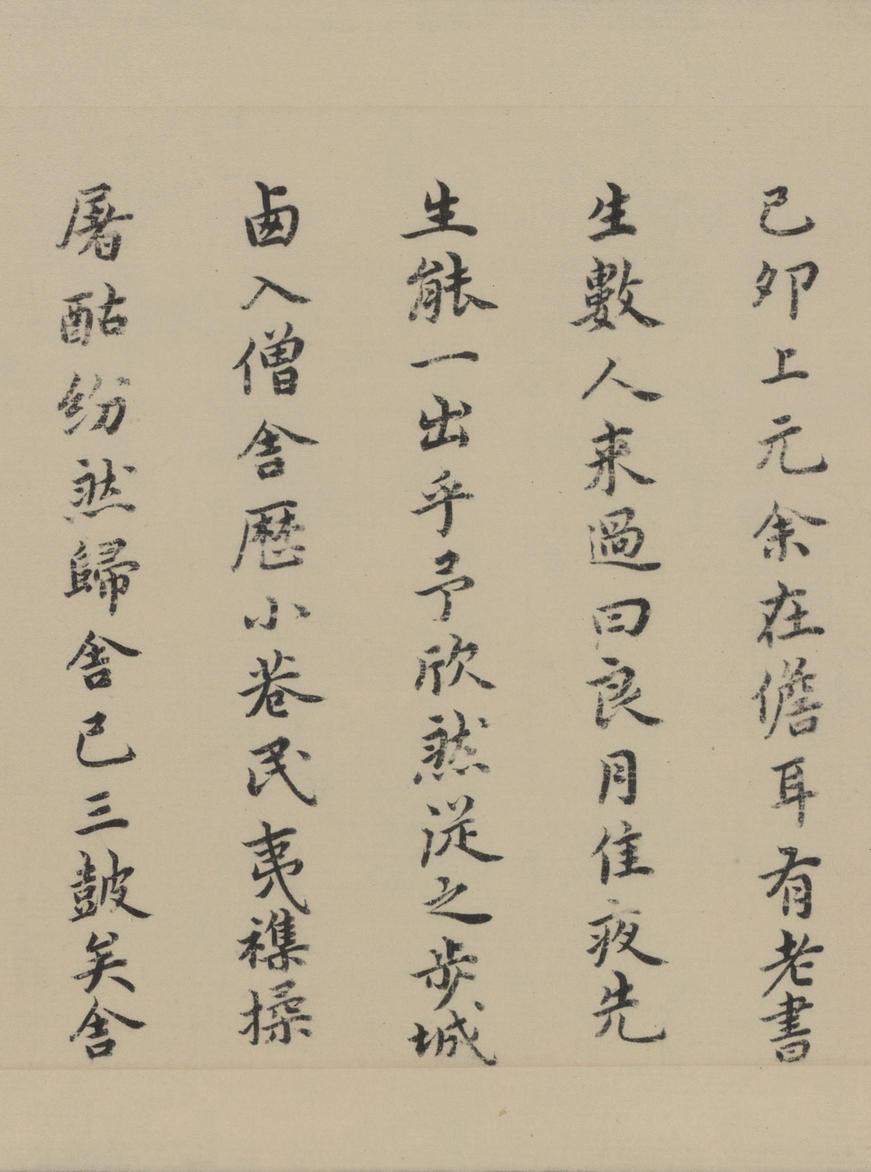 己卯上元余在儋耳有老書
生數人來過曰良月佳夜先
生能一出乎予欣然從之步城
西入僧舍歷小巷民夷雜揉
屠酤紛然歸舍已三鼓矣舍